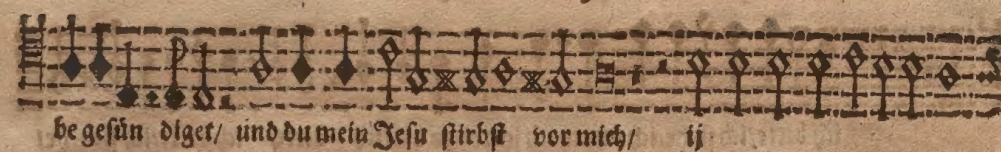 be gesün diget/ und du mein Jesu stirbst vor mich/ ij